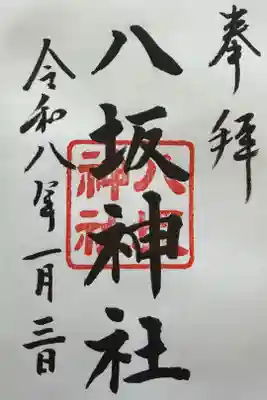 奉拝
八坂神社
八坂神社
令和八年一月三日